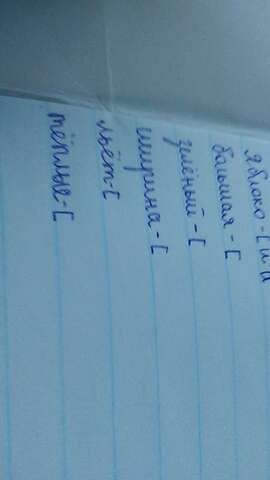 яблоко - [ и и
балшая - [
зелёный - [
ширина - [
льёт - [
тёплые - [